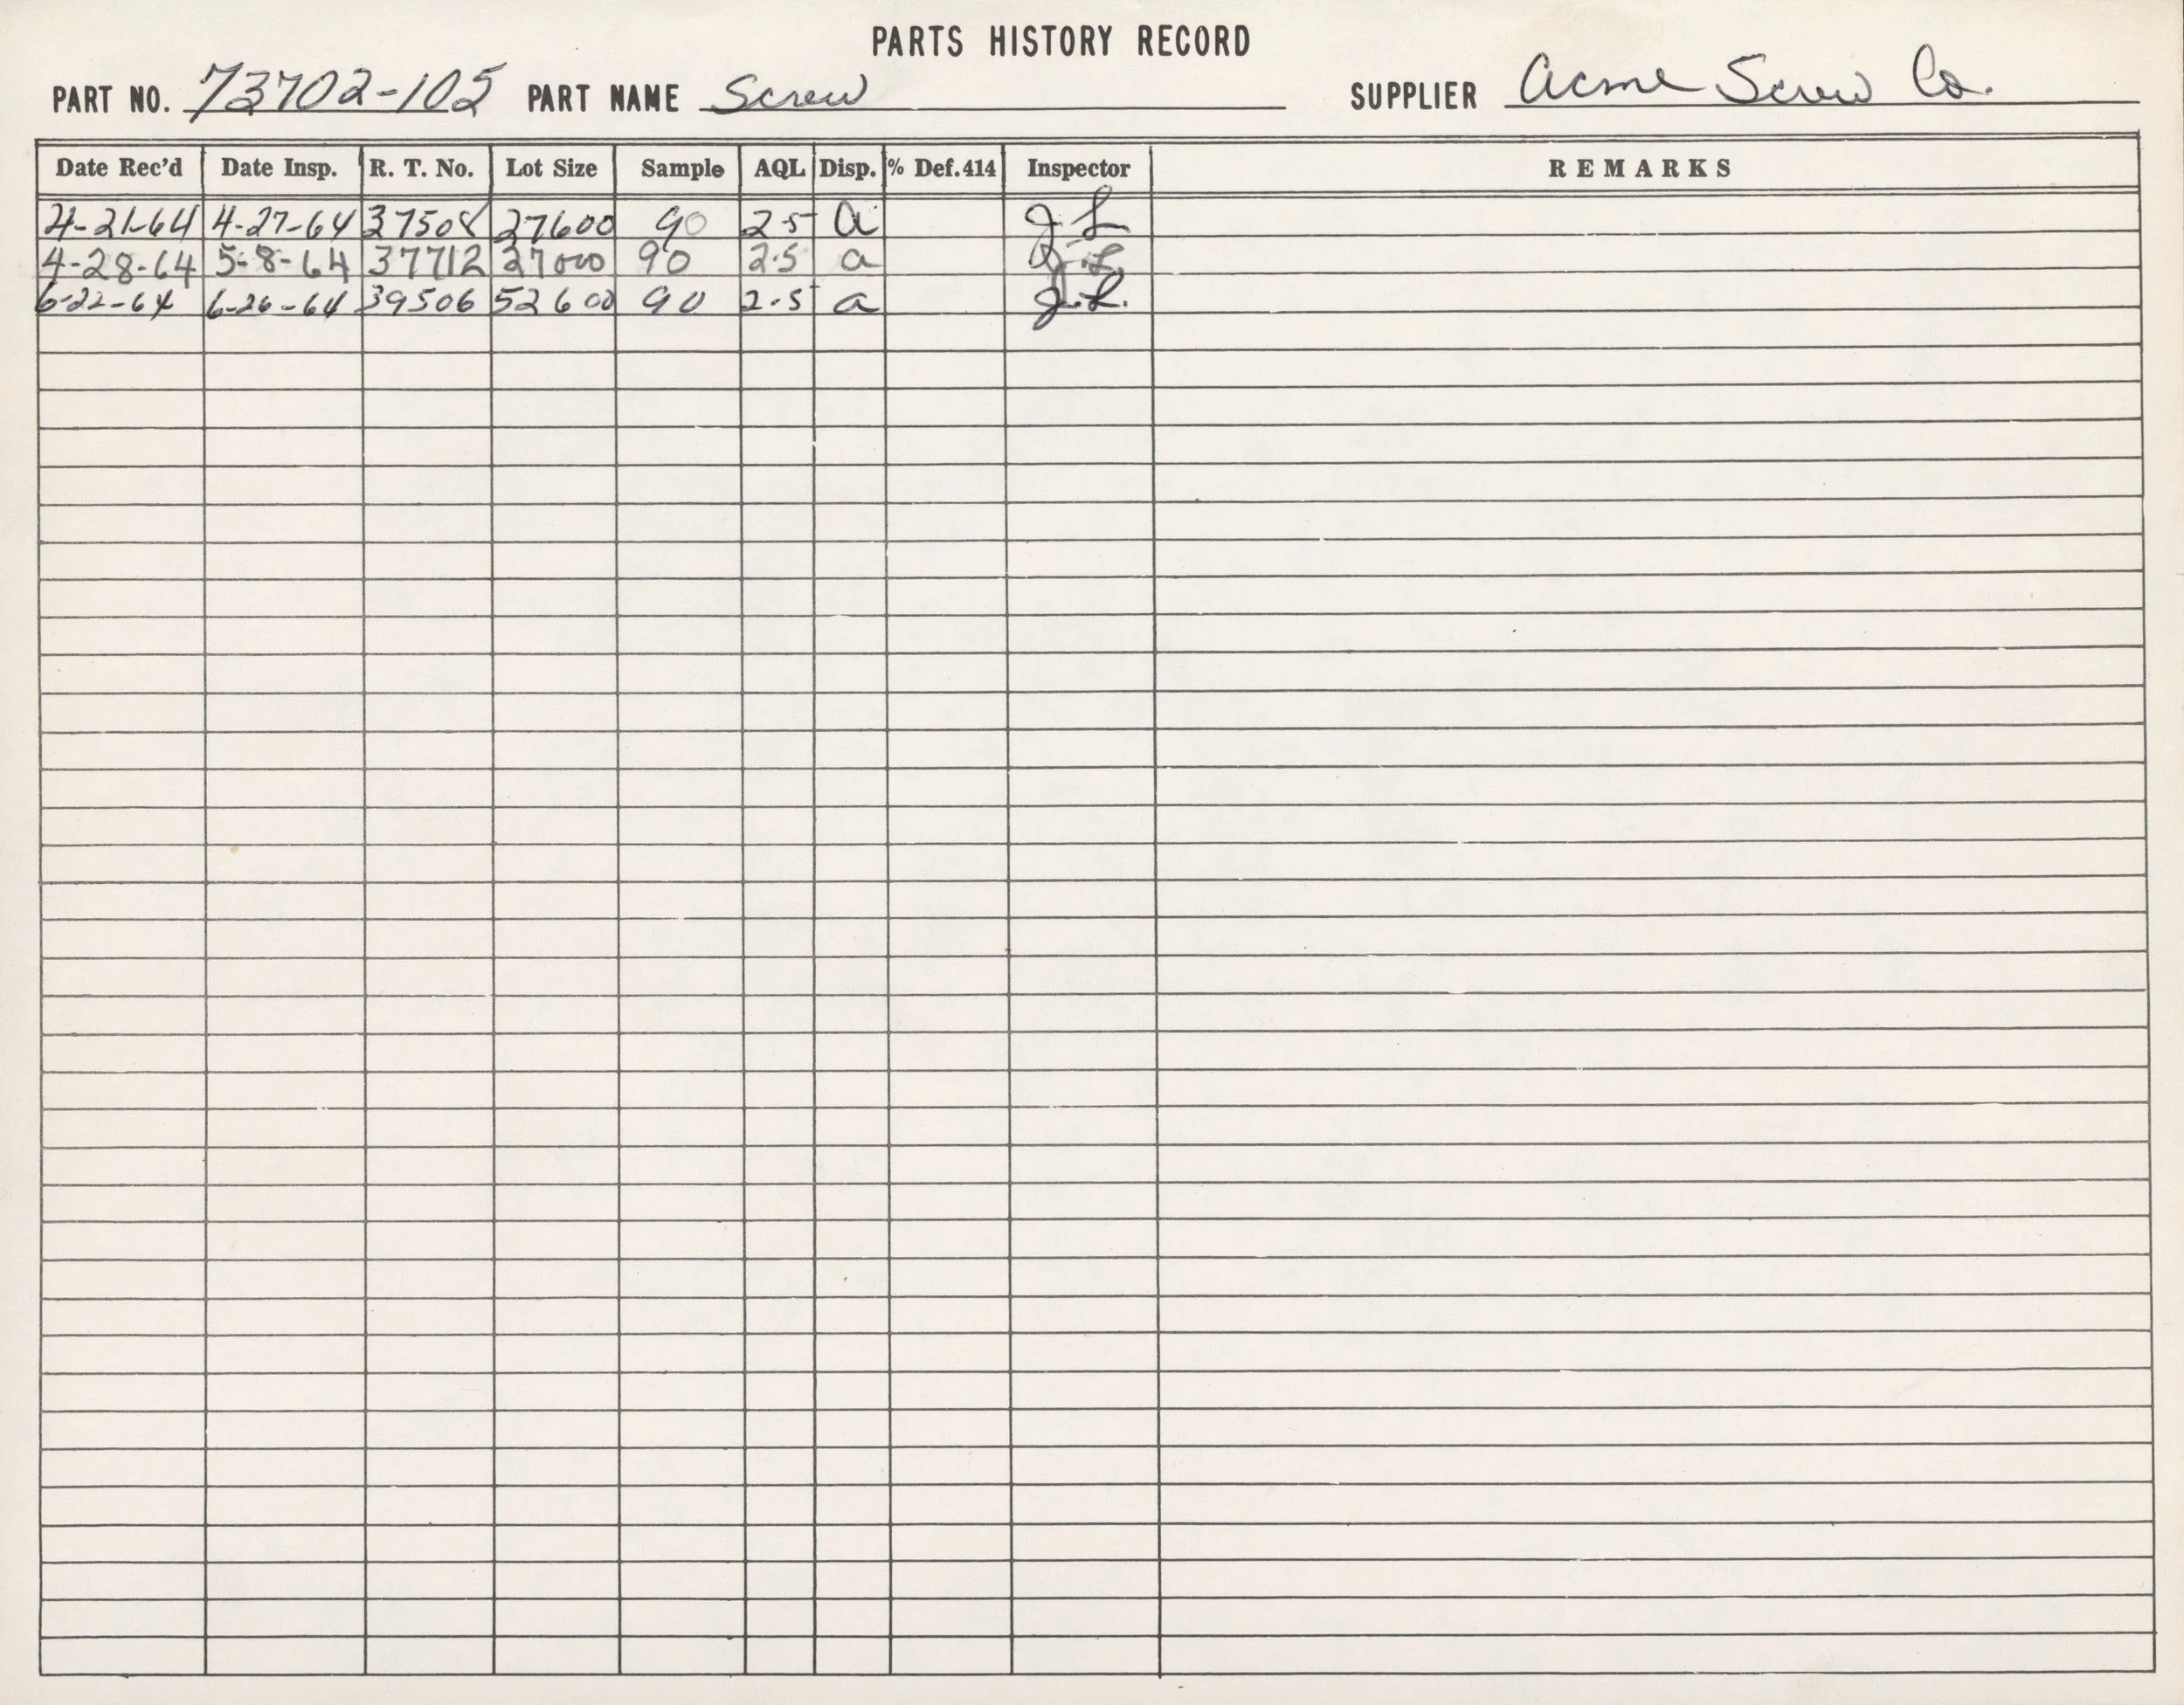 PARTS HISTORY RECORD
PART NO. 73702-105 PART NAME Screw SUPPLIER Acme Screw Co.
Date Rec'd Date Insp. R. T. No. Lot Size Sample AQL Disp. % Def.414 Inspector REMARKS
4-21-64 4-27-64 37508 27600 90 2.5 a J.L
4-28-64 5-8-64 37712 27000 90 2.5 a J.L.
6-22-64 6-26-64 39506 52600 90 2.5 a J.L.